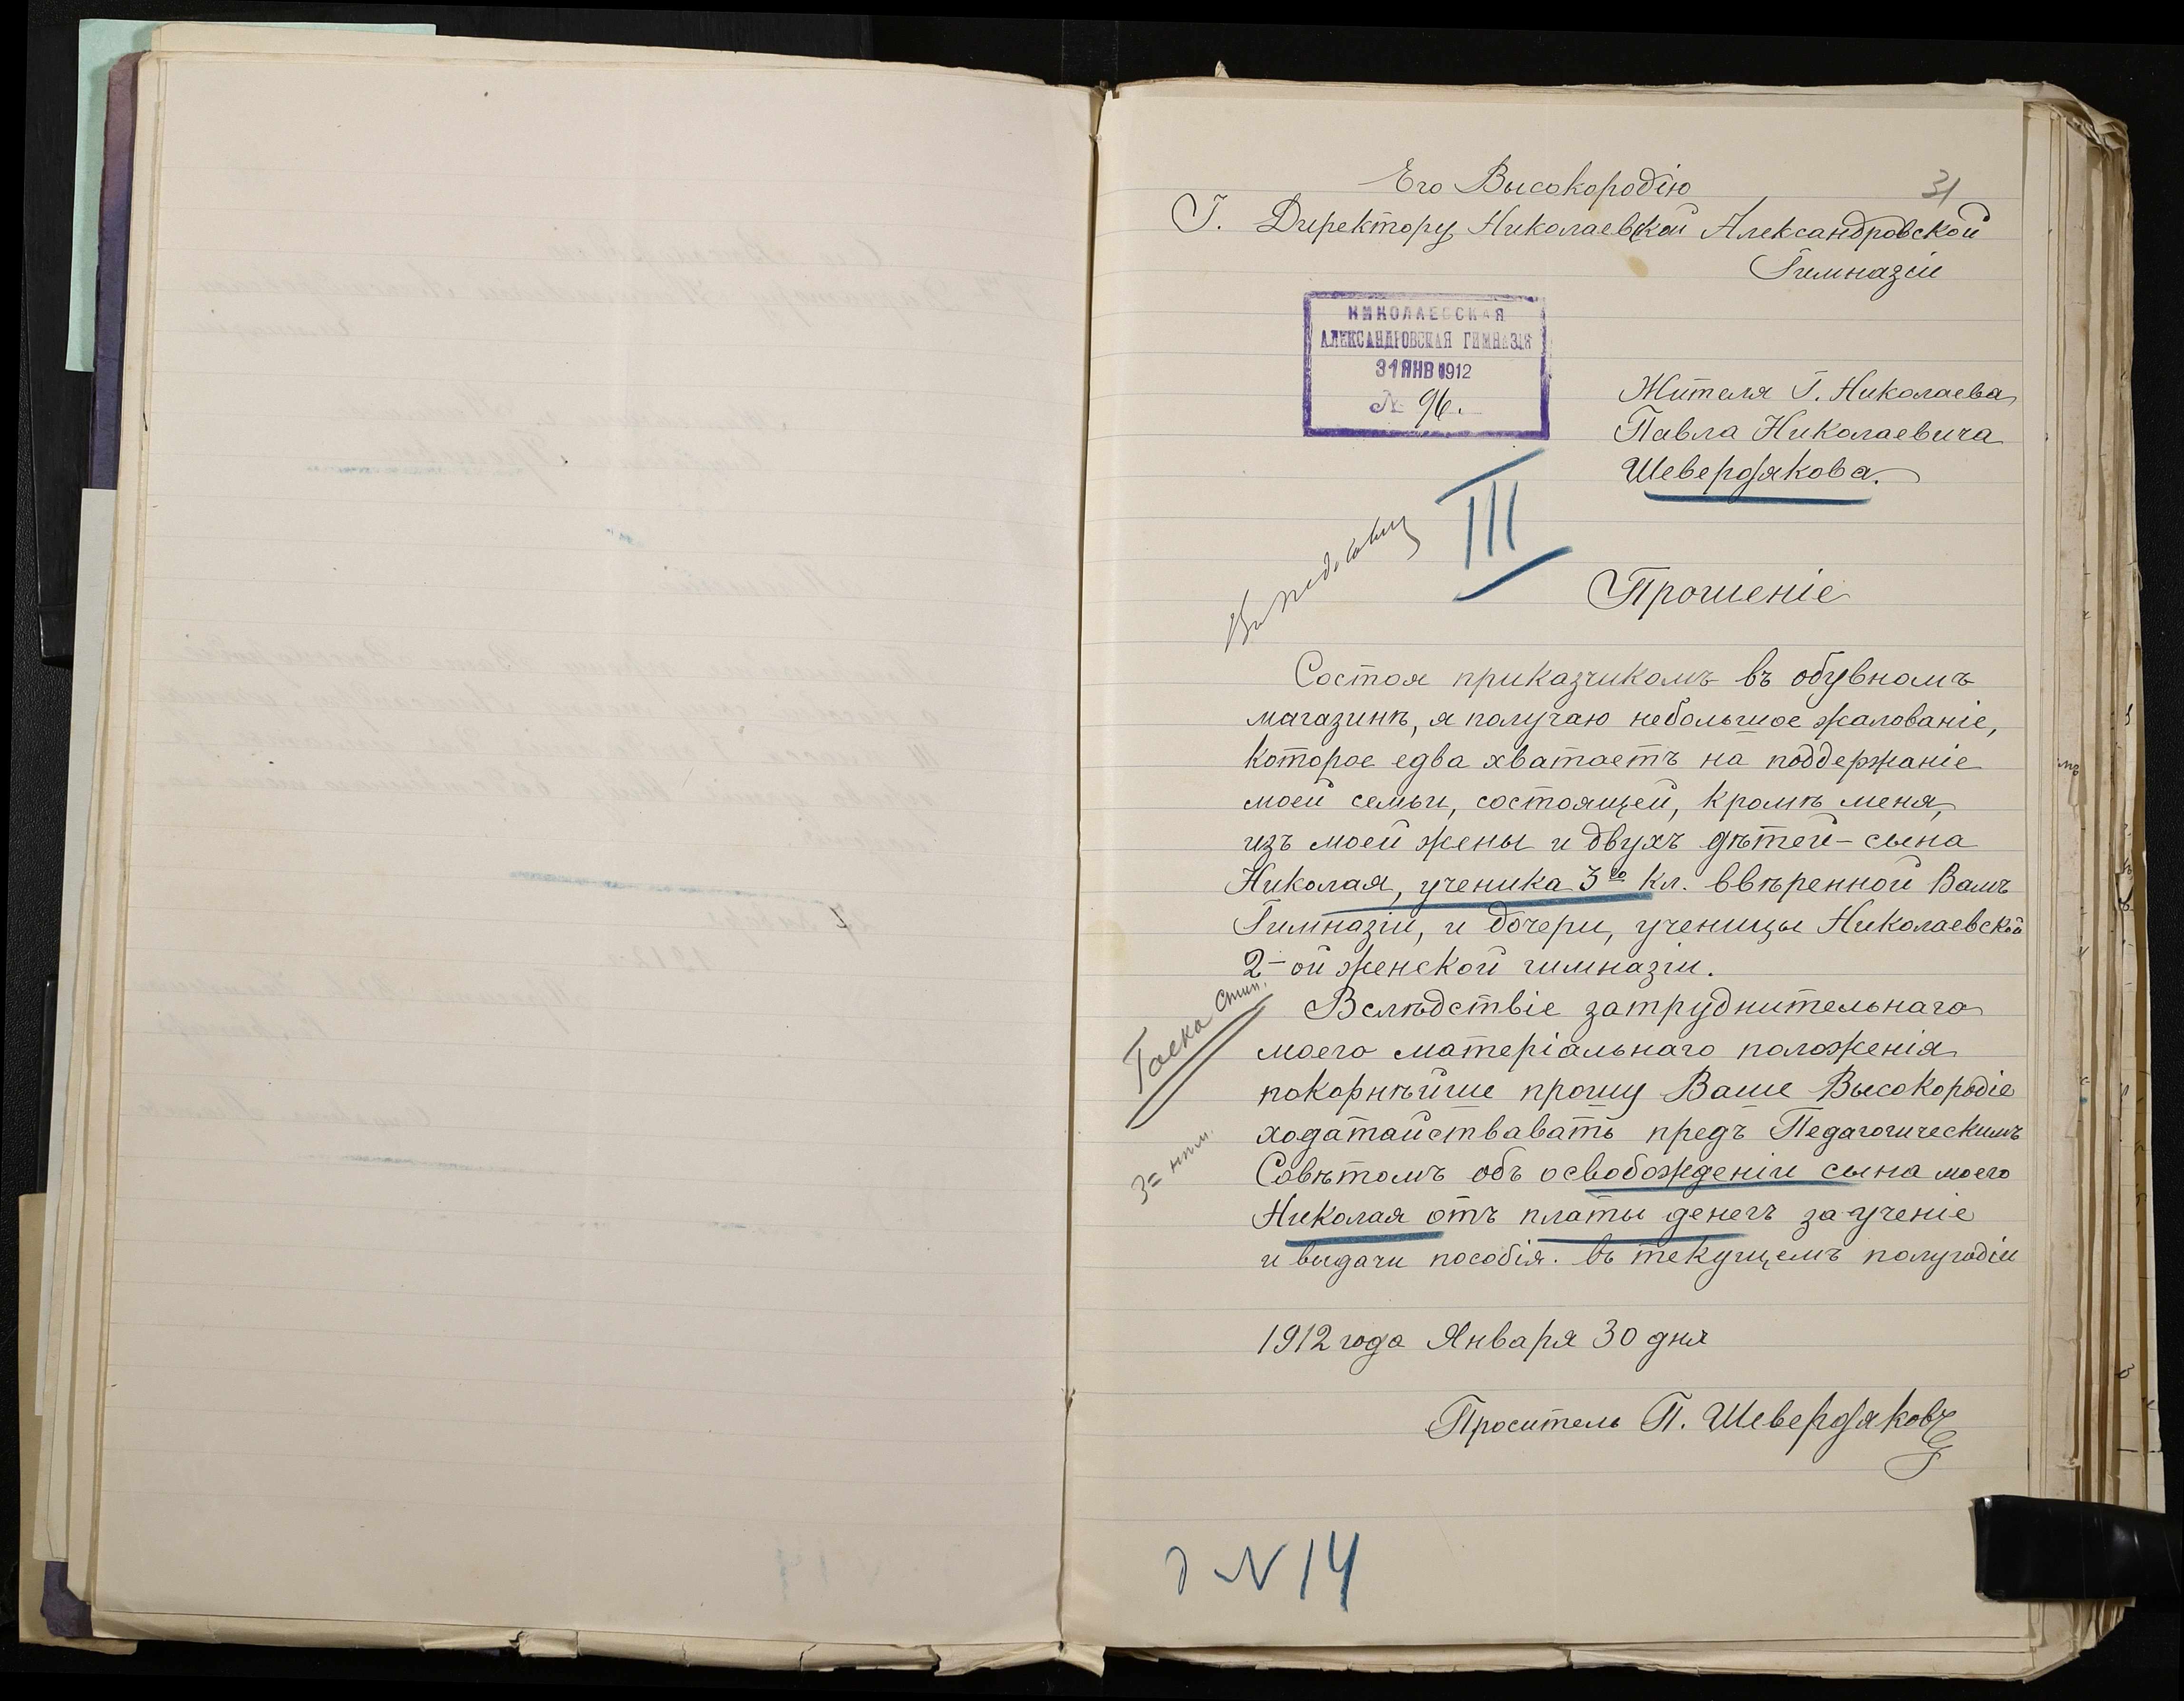 31
Его Высокородію
Г. Директору Николаевской Александровской
Гимназіи
НИКОЛАЕВСКАЯ
АЛЕКСАНДРОВСКАЯ ГИМНАЗІЯ
31 ЯНВ 1912
№ 96.
Жителя Г. Николаева
Павла Николаевича
Шевердякова.
III
Въ пед. совѣтъ
Прошеніе
Состоя приказчикомъ въ обувномъ
магазинѣ, я получаю небольшое жалованіе,
которое едва хватаетъ на поддержаніе
моей семьи, состоящей, кромѣ меня,
изъ моей жены и двухъ дѣтей – сына
Николая, ученика 3го кл. ввѣренной Вамъ
Гимназіи, и дочери, ученицы Николаевской
2-ой женской гимназіи.
Вслѣдствіе затруднительнаго
моего матеріальнаго положенія
покорнѣйше прошу Ваше Высокородіе
ходатайствавать предъ Педагогическимъ
Совѣтомъ объ освобожденіи сына моего
Николая отъ платы денегъ за ученіе
и выдачи пособія. въ текущемъ полугодіи
1912 года Января 30 дня
Проситель П. Шевердяковъ
д N 14